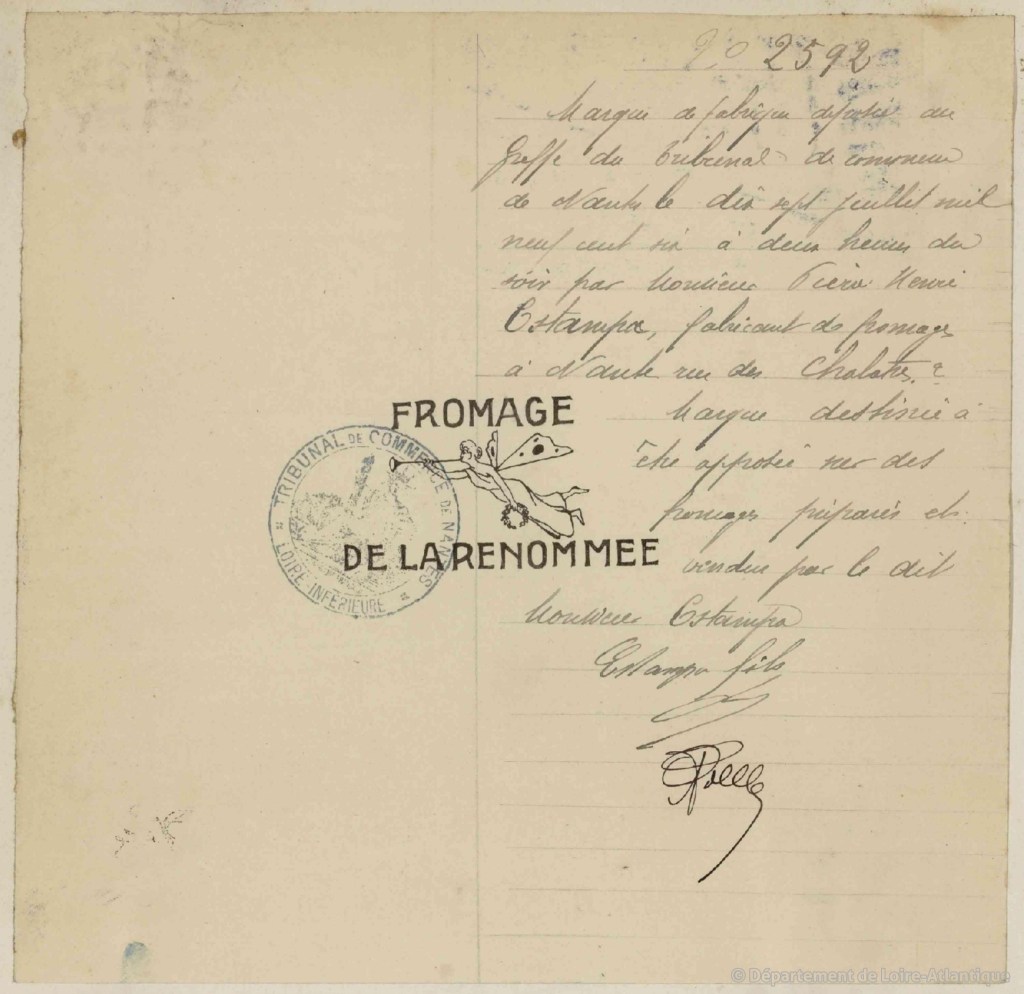 No 2592
Marque de fabrique déposée au
Greffe du tribunal de commerce
de Nantes le dix sept juillet mil
neuf cent six à deux heures du
soir par Monsieur Pierre Henri
Estampa, fabricant de fromages
à Nantes rue des
Marque destinée à
être apposée sur des
fromages préparés et
vendus par le dit
Monsieur Estampa
Estampa fils
FROMAGE
DE LA RENOMMEE
TRIBUNAL DE COMMERCE DE NANTES
LOIRE INFÉRIEURE
© Département de Loire-Atlantique